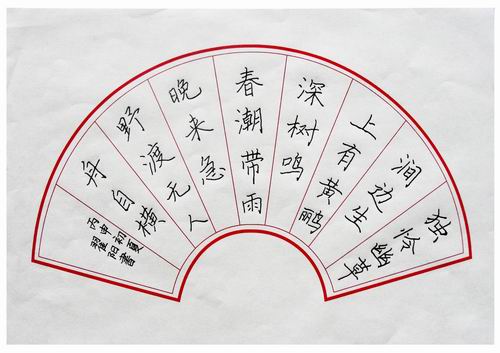 独怜幽草
涧边生
上有黄鹂
深树鸣
春潮带雨
晚来急
野渡无人
舟自横
丙申初夏
翟阳書